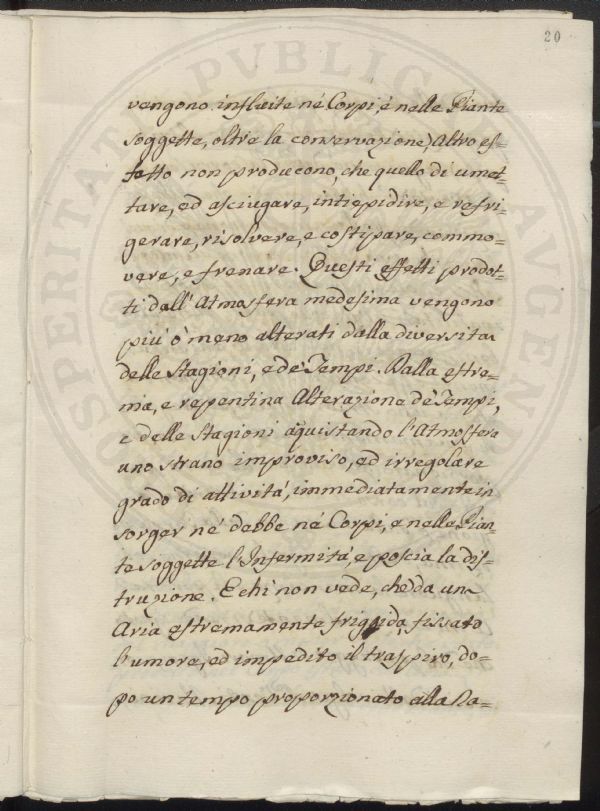 20
vengono influite né Corpi, é nelle Piante
soggette, oltre la conservazione) Altro ef-
fetto non producono, che quello di umet-
tare, ed asciugare, intiepidire, e refri-
gerare, risolvere, e costipare, commo-
vere, e frenare. Questi effetti prodot-
ti dall' Atmosfera medesima vengono
più ò meno alterati dalla diversità
delle Stagioni, e dè Tempi. Dalla estre-
ma, e repentina Alterazione dè Tempi,
e delle Stagioni aquistando l'Atmosfera
uno strano improviso, ed irregolare
grado di attività, immediatamente in
sorger né debbe né Corpi, e nelle Pian-
te soggette l'Infermità, e poscia la dis-
truzione. E chi non vede, che da un
Aria estremamente frigida, fissato
l'umore, ed impedito il traspiro, do-
po un tempo proporzionato alla Na-
PUBLIC
AUGENDAE